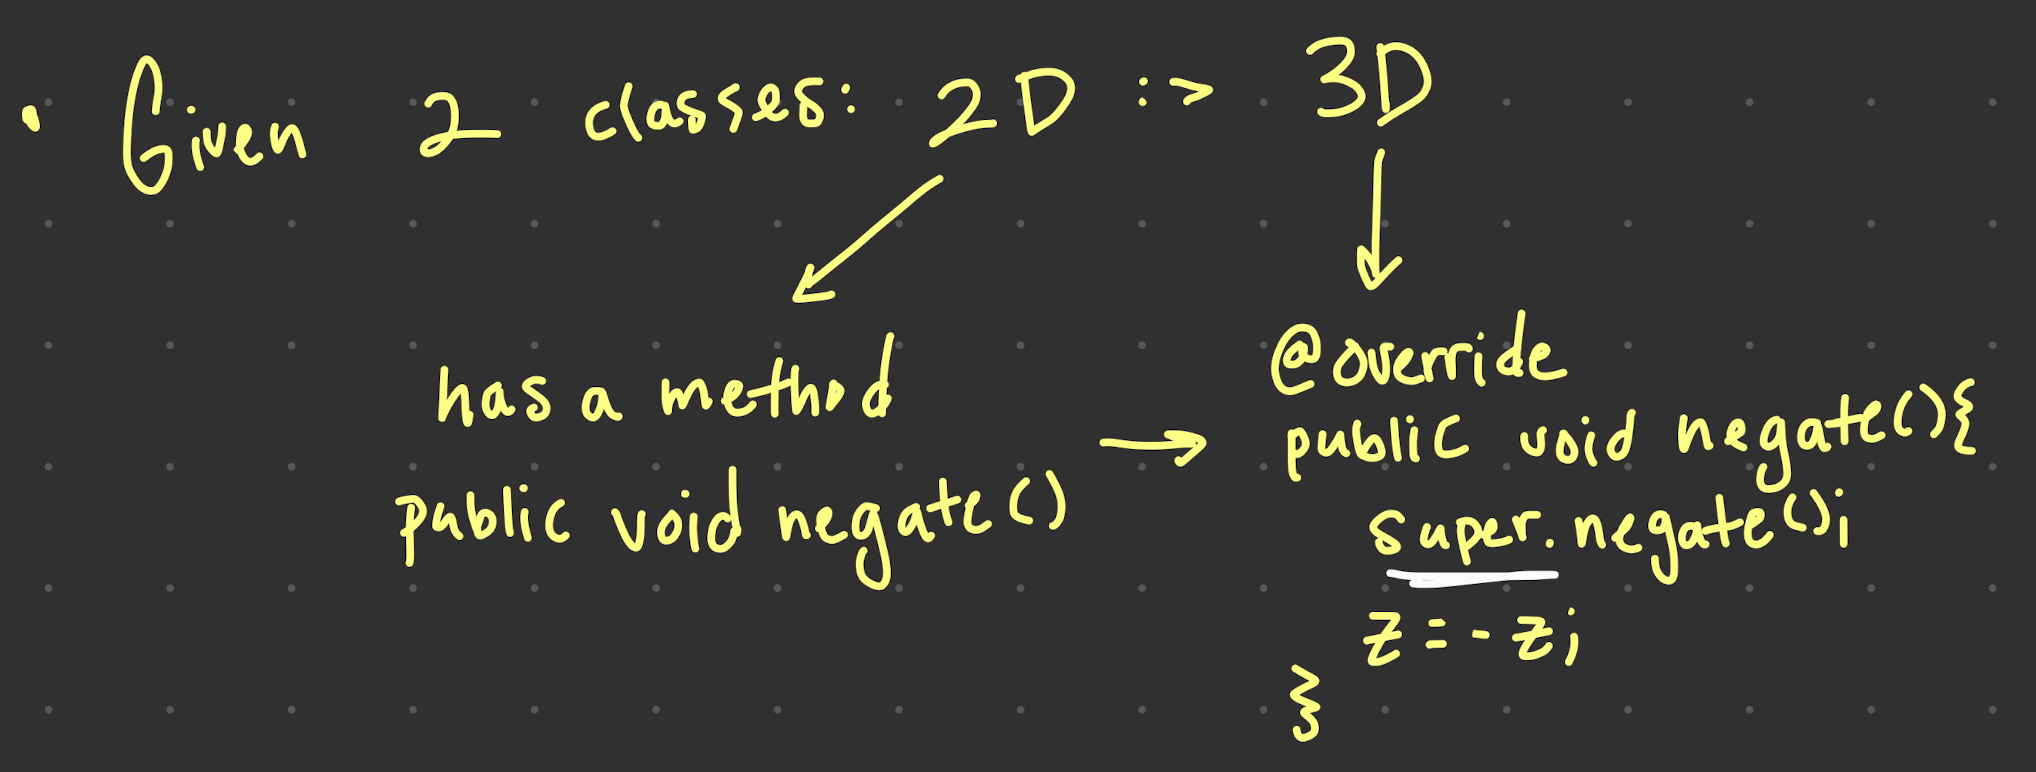 • Given 2 classes: 2D :> 3D
has a method
public void negate()
@override
public void negate(){
super.negate();
z = - z;
}